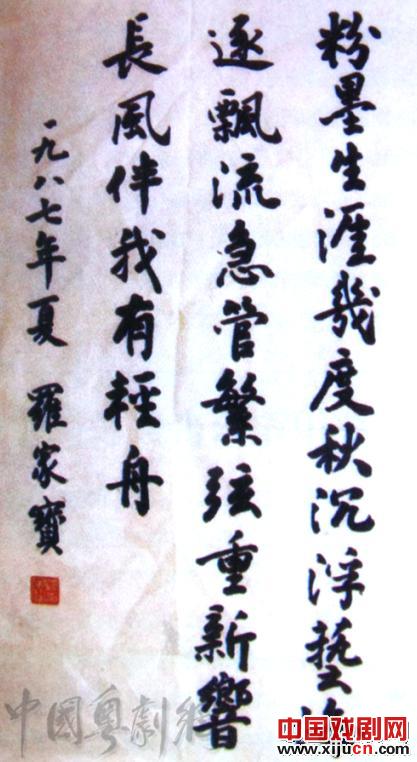 粉墨生涯幾度秋沉浮藝海
逐飄流急管繁弦重新響
長風伴我有輕舟
一九八七年夏 羅家寶
中國粵劇網
中国戏剧网
www.xijucn.com